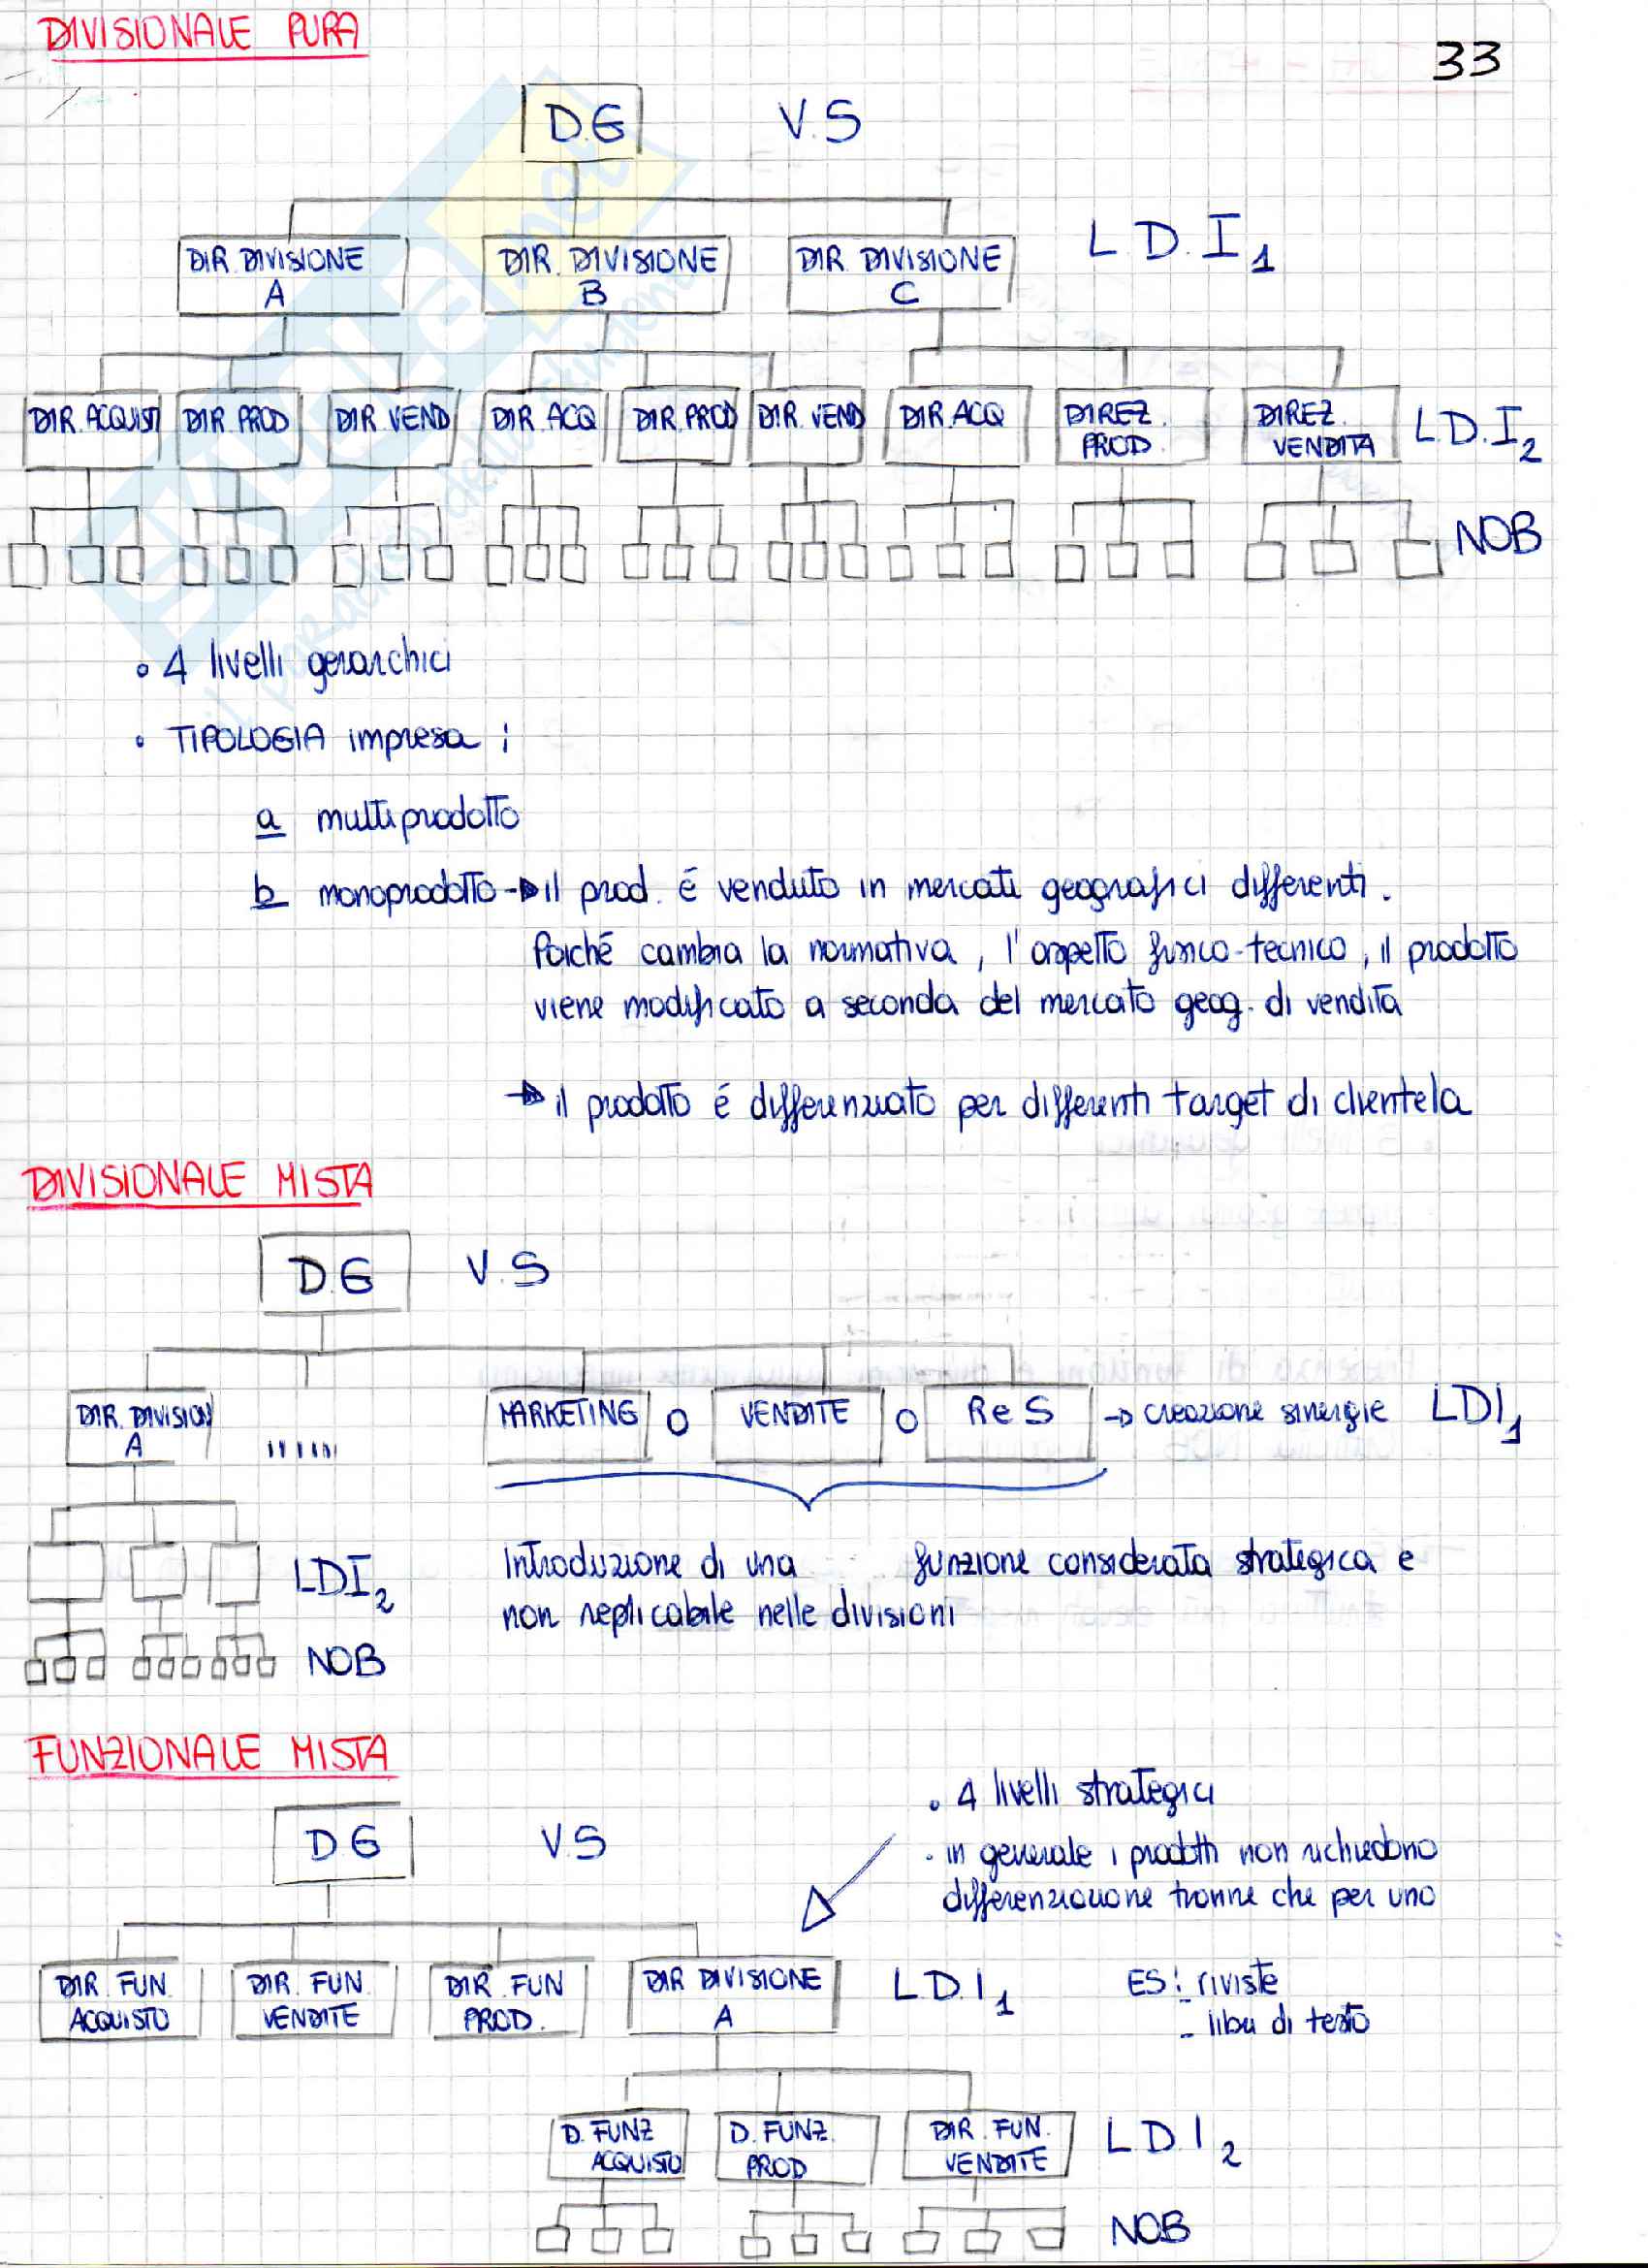 DIVISIONALE PURA
33
D.G V.S
DIR. DIVISIONE A
DIR. DIVISIONE B
DIR. DIVISIONE C
L.D.I1
DIR. ACQUISTI
DIR. PROD
DIR. VEND
DIR. ACQ
DIR. PROD
DIR. VEND
DIR. ACQ
DIREZ. PROD.
DIREZ. VENDITA
L.D.I2
NOB
• 4 livelli gerarchici
• TIPOLOGIA impresa :
a multiprodotto
b monoprodotto → il prod. é venduto in mercati geografici differenti.
Poiché cambia la normativa, l'aspetto fisico-tecnico, il prodotto
viene modificato a seconda del mercato geog. di vendita
→ il prodotto é differenziato per differenti target di clientela
DIVISIONALE MISTA
D.G V.S
DIR. DIVISION A
......
MARKETING o VENDITE o R e S → creazione sinergie LDI1
LDI2
NOB
Introduzione di una funzione considerata strategica e
non replicabile nelle divisioni
FUNZIONALE MISTA
• 4 livelli strategici
D G V.S
• in generale i prodotti non richiedono
differenziazione tranne che per uno
DIR. FUN. ACQUISTO
DIR. FUN. VENDITE
DIR. FUN PROD.
DIR DIVISIONE A
L.D.I1
ES: - riviste
- libri di testo
D. FUNZ ACQUISTO
D. FUNZ. PROD
DIR. FUN. VENDITE
L.D.I2
NOB